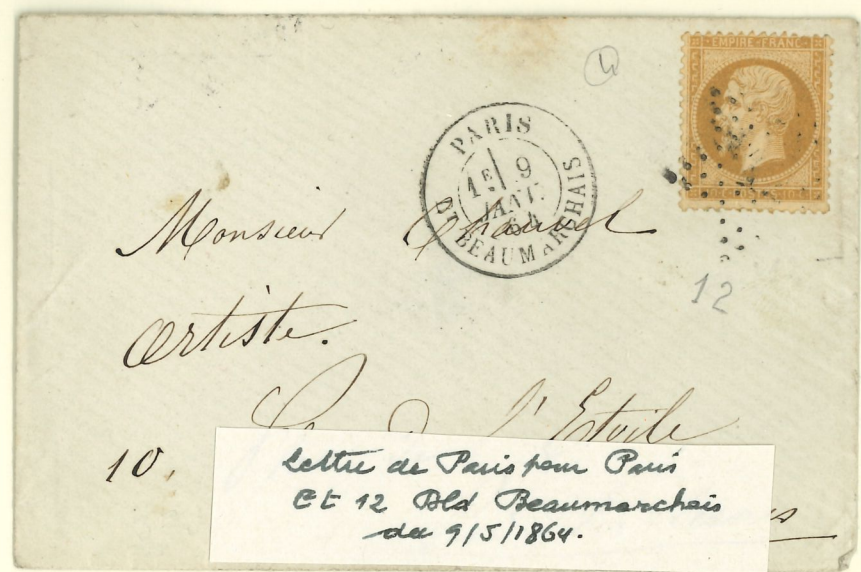 4
EMPIRE FRANC
PARIS
1E 9
JANV.
64
Bd BEAUMARCHAIS
12
Monsieur Chauvel
Artiste.
l'Etoile
10.
Lettre de Paris pour Paris
Et 12 Bld Beaumarchais
du 9/5/1864.